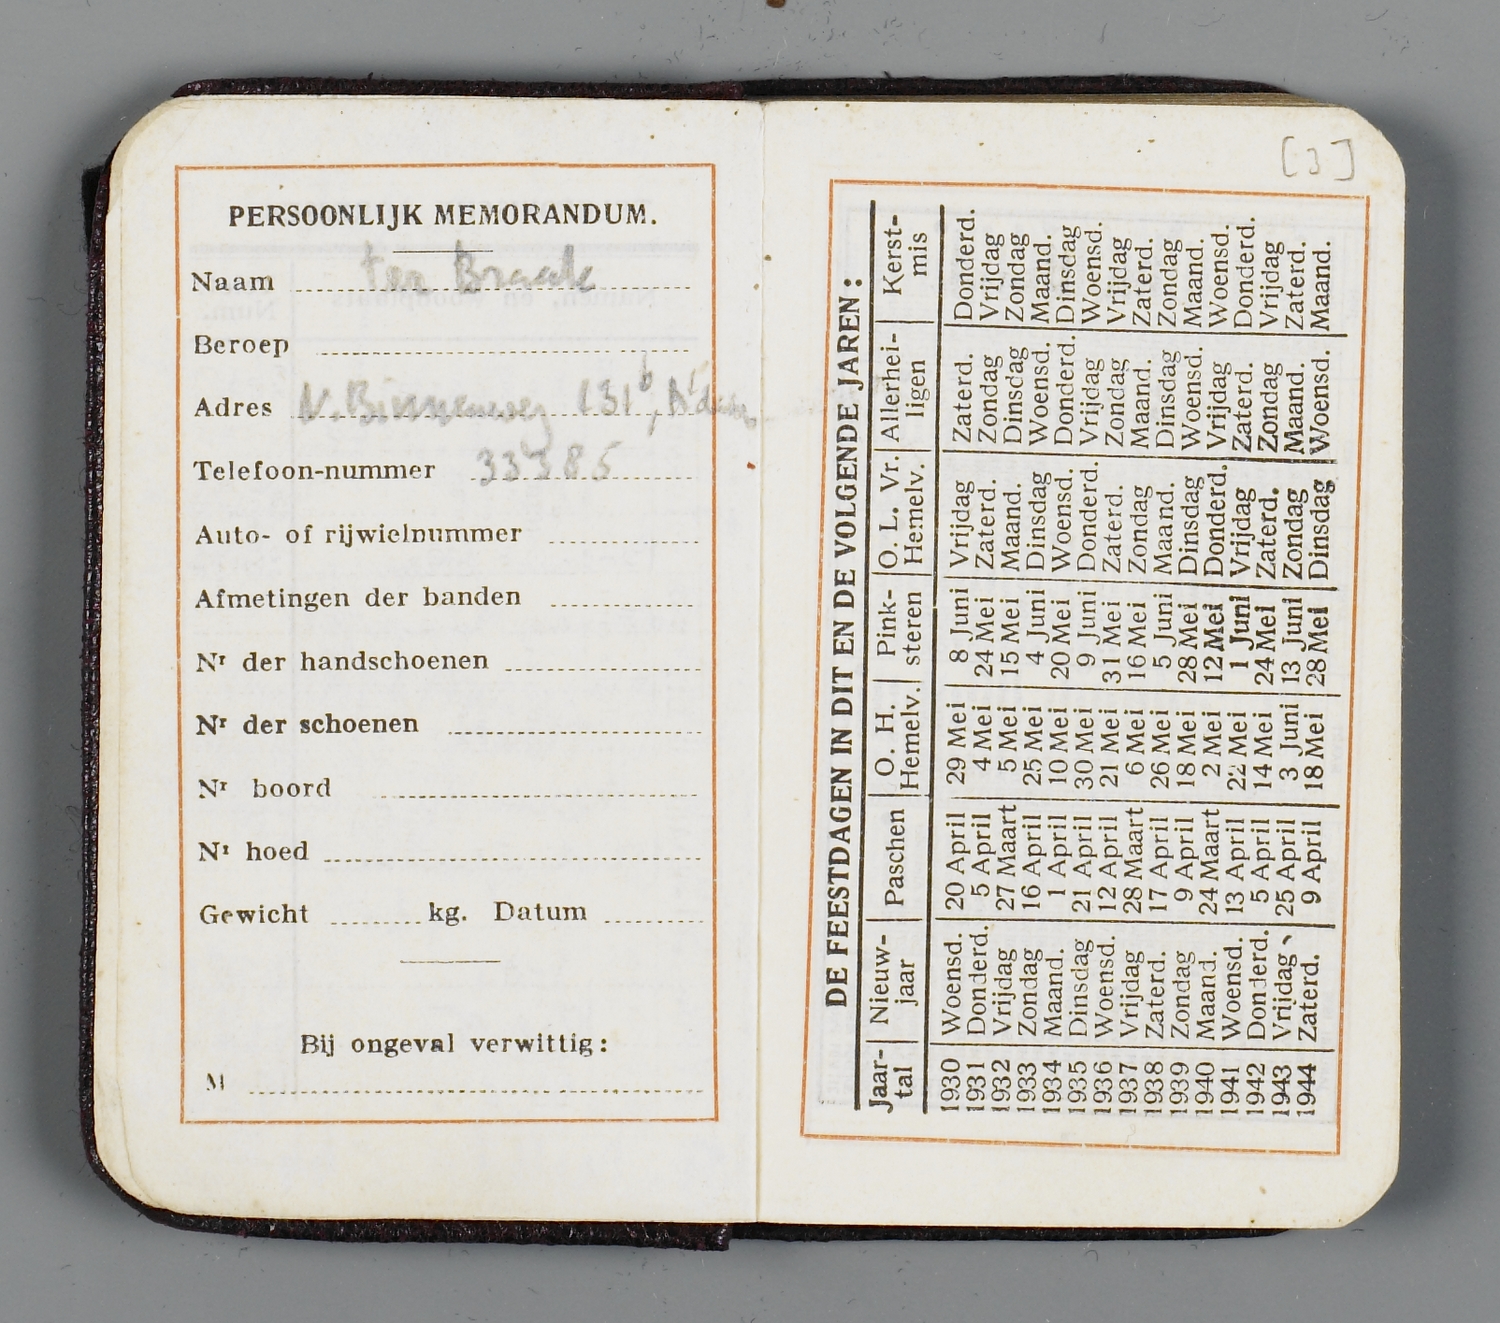 PERSOONLIJK MEMORANDUM.
Naam ter Braak
Beroep
Adres N. Binnenweg 131b, R'dam
Telefoon-nummer 33385
Auto- of rijwielnummer
Afmetingen der banden
Nr der handschoenen
Nr der schoenen
Nr boord
Nr hoed
Gewicht kg. Datum
Bij ongeval verwittig:
M
[3]
DE FEESTDAGEN IN DIT EN DE VOLGENDE JAREN:
Jaar-tal Nieuw-jaar Paschen O. H. Hemelv. Pink-steren O. L. Vr. Hemelv. Allerhei-ligen Kerst-mis
1930 Woensd. 20 April 29 Mei 8 Juni Vrijdag Zaterd. Donderd.
1931 Donderd. 5 April 4 Mei 24 Mei Zaterd. Zondag Vrijdag
1932 Vrijdag 27 Maart 5 Mei 15 Mei Maand. Dinsdag Zondag
1933 Zondag 16 April 25 Mei 4 Juni Dinsdag Woensd. Maand.
1934 Maand. 1 April 10 Mei 20 Mei Woensd. Donderd. Dinsdag
1935 Dinsdag 21 April 30 Mei 9 Juni Donderd. Vrijdag Woensd.
1936 Woensd. 12 April 21 Mei 31 Mei Zaterd. Zondag Vrijdag
1937 Vrijdag 28 Maart 6 Mei 16 Mei Zondag Maand. Zaterd.
1938 Zaterd. 17 April 26 Mei 5 Juni Maand. Dinsdag Zondag
1939 Zondag 9 April 18 Mei 28 Mei Dinsdag Woensd. Maand.
1940 Maand. 24 Maart 2 Mei 12 Mei Donderd. Vrijdag Woensd.
1941 Woensd. 13 April 22 Mei 1 Juni Vrijdag Zaterd. Donderd.
1942 Donderd. 5 April 14 Mei 24 Mei Zaterd. Zondag Vrijdag
1943 Vrijdag 25 April 3 Juni 13 Juni Zondag Maand. Zaterd.
1944 Zaterd. 9 April 18 Mei 28 Mei Dinsdag Woensd. Maand.